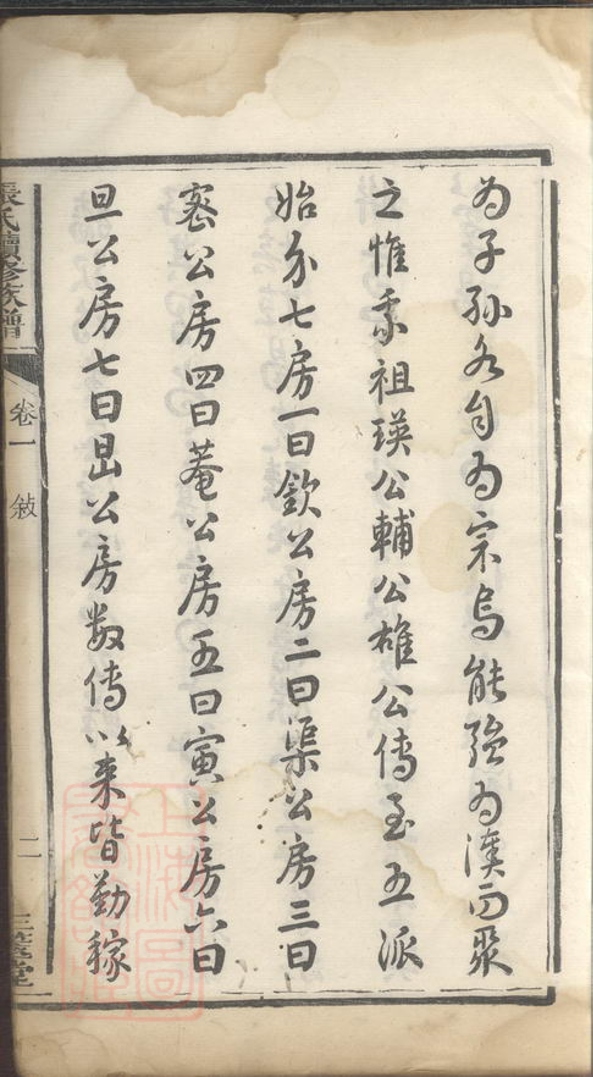 为子孙各自为宗乌能强为渙而聚
之惟我祖瑛公輔公雄公傳至五派
始分七房一曰欽公房二曰渠公房三曰
密公房四曰菴公房五曰寅公房六曰
旦公房七曰昆公房数傳以来皆勤稼
張氏續修族譜
卷一
敍
二
上海圖書館藏